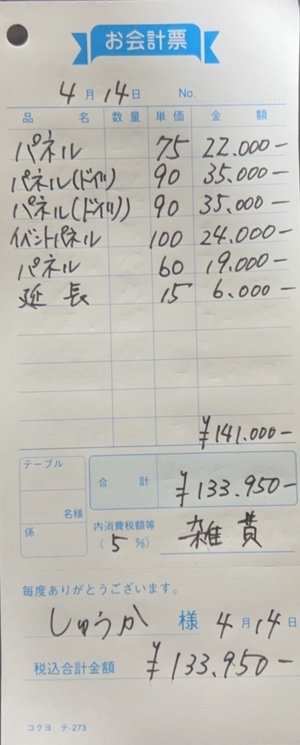 お会計票
4月14日 No.
品名 数量 単価 金額
パネル 75 22.000-
パネル(ドイツ) 90 35.000-
パネル(ドイツ) 90 35.000-
イベントパネル 100 24.000-
パネル 60 19.000-
延長 15 6.000-
¥141.000-
テーブル
合計 ¥133.950-
名様
係
内消費税額等
(5%) 雑費
毎度ありがとうございます。
しゅうか 様 4月14日
税込合計金額 ¥133.950-
コクヨ テ-273